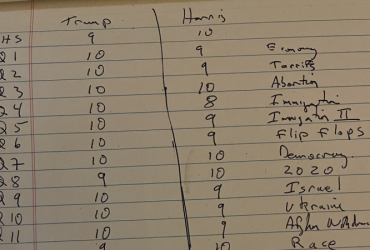 Trump Harris
HS 9 10
Q1 10 9 Economy
Q2 10 9 Tarrifs
Q3 10 10 Abortion
Q4 10 8 Immigration
Q5 10 9 Immigration II
Q6 10 9 Flip Flops
Q7 10 10 Democracy
Q8 9 10 2020
Q9 10 9 Israel
Q10 10 9 Ukraine
Q11 10 9 Afghn
9 10 Race